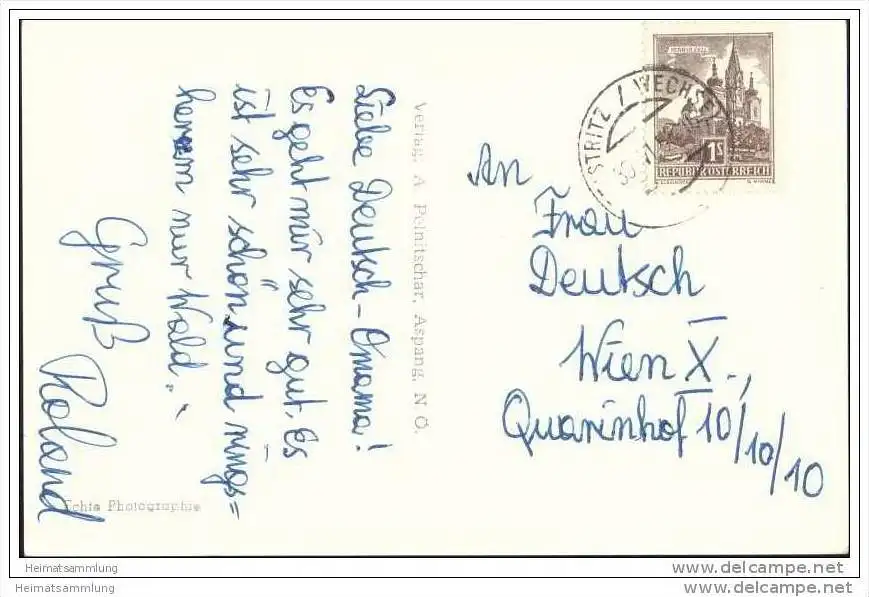 Liebe Deutsch-Omama!
Es geht mir sehr gut. Es
ist sehr schön und rings=
herum nur Wald.
Gruß
Roland
Verlag: A Pelnitschar, Aspang, N. Ö.
Echte Photographie
An
Frau
Deutsch
Wien X.,
Quarinhof 10/10/10
MARIAZELL
1S
REPUBLIK ÖSTERREICH
STRITZ / WECHSEL
Heimatsammlung
www.delcampe.net
Heimatsammlung
www.delcampe.net